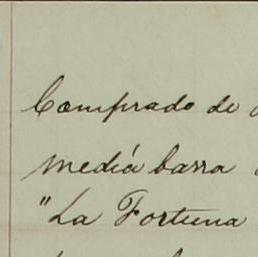 Comprado de
mediá barra
"La Fortuna